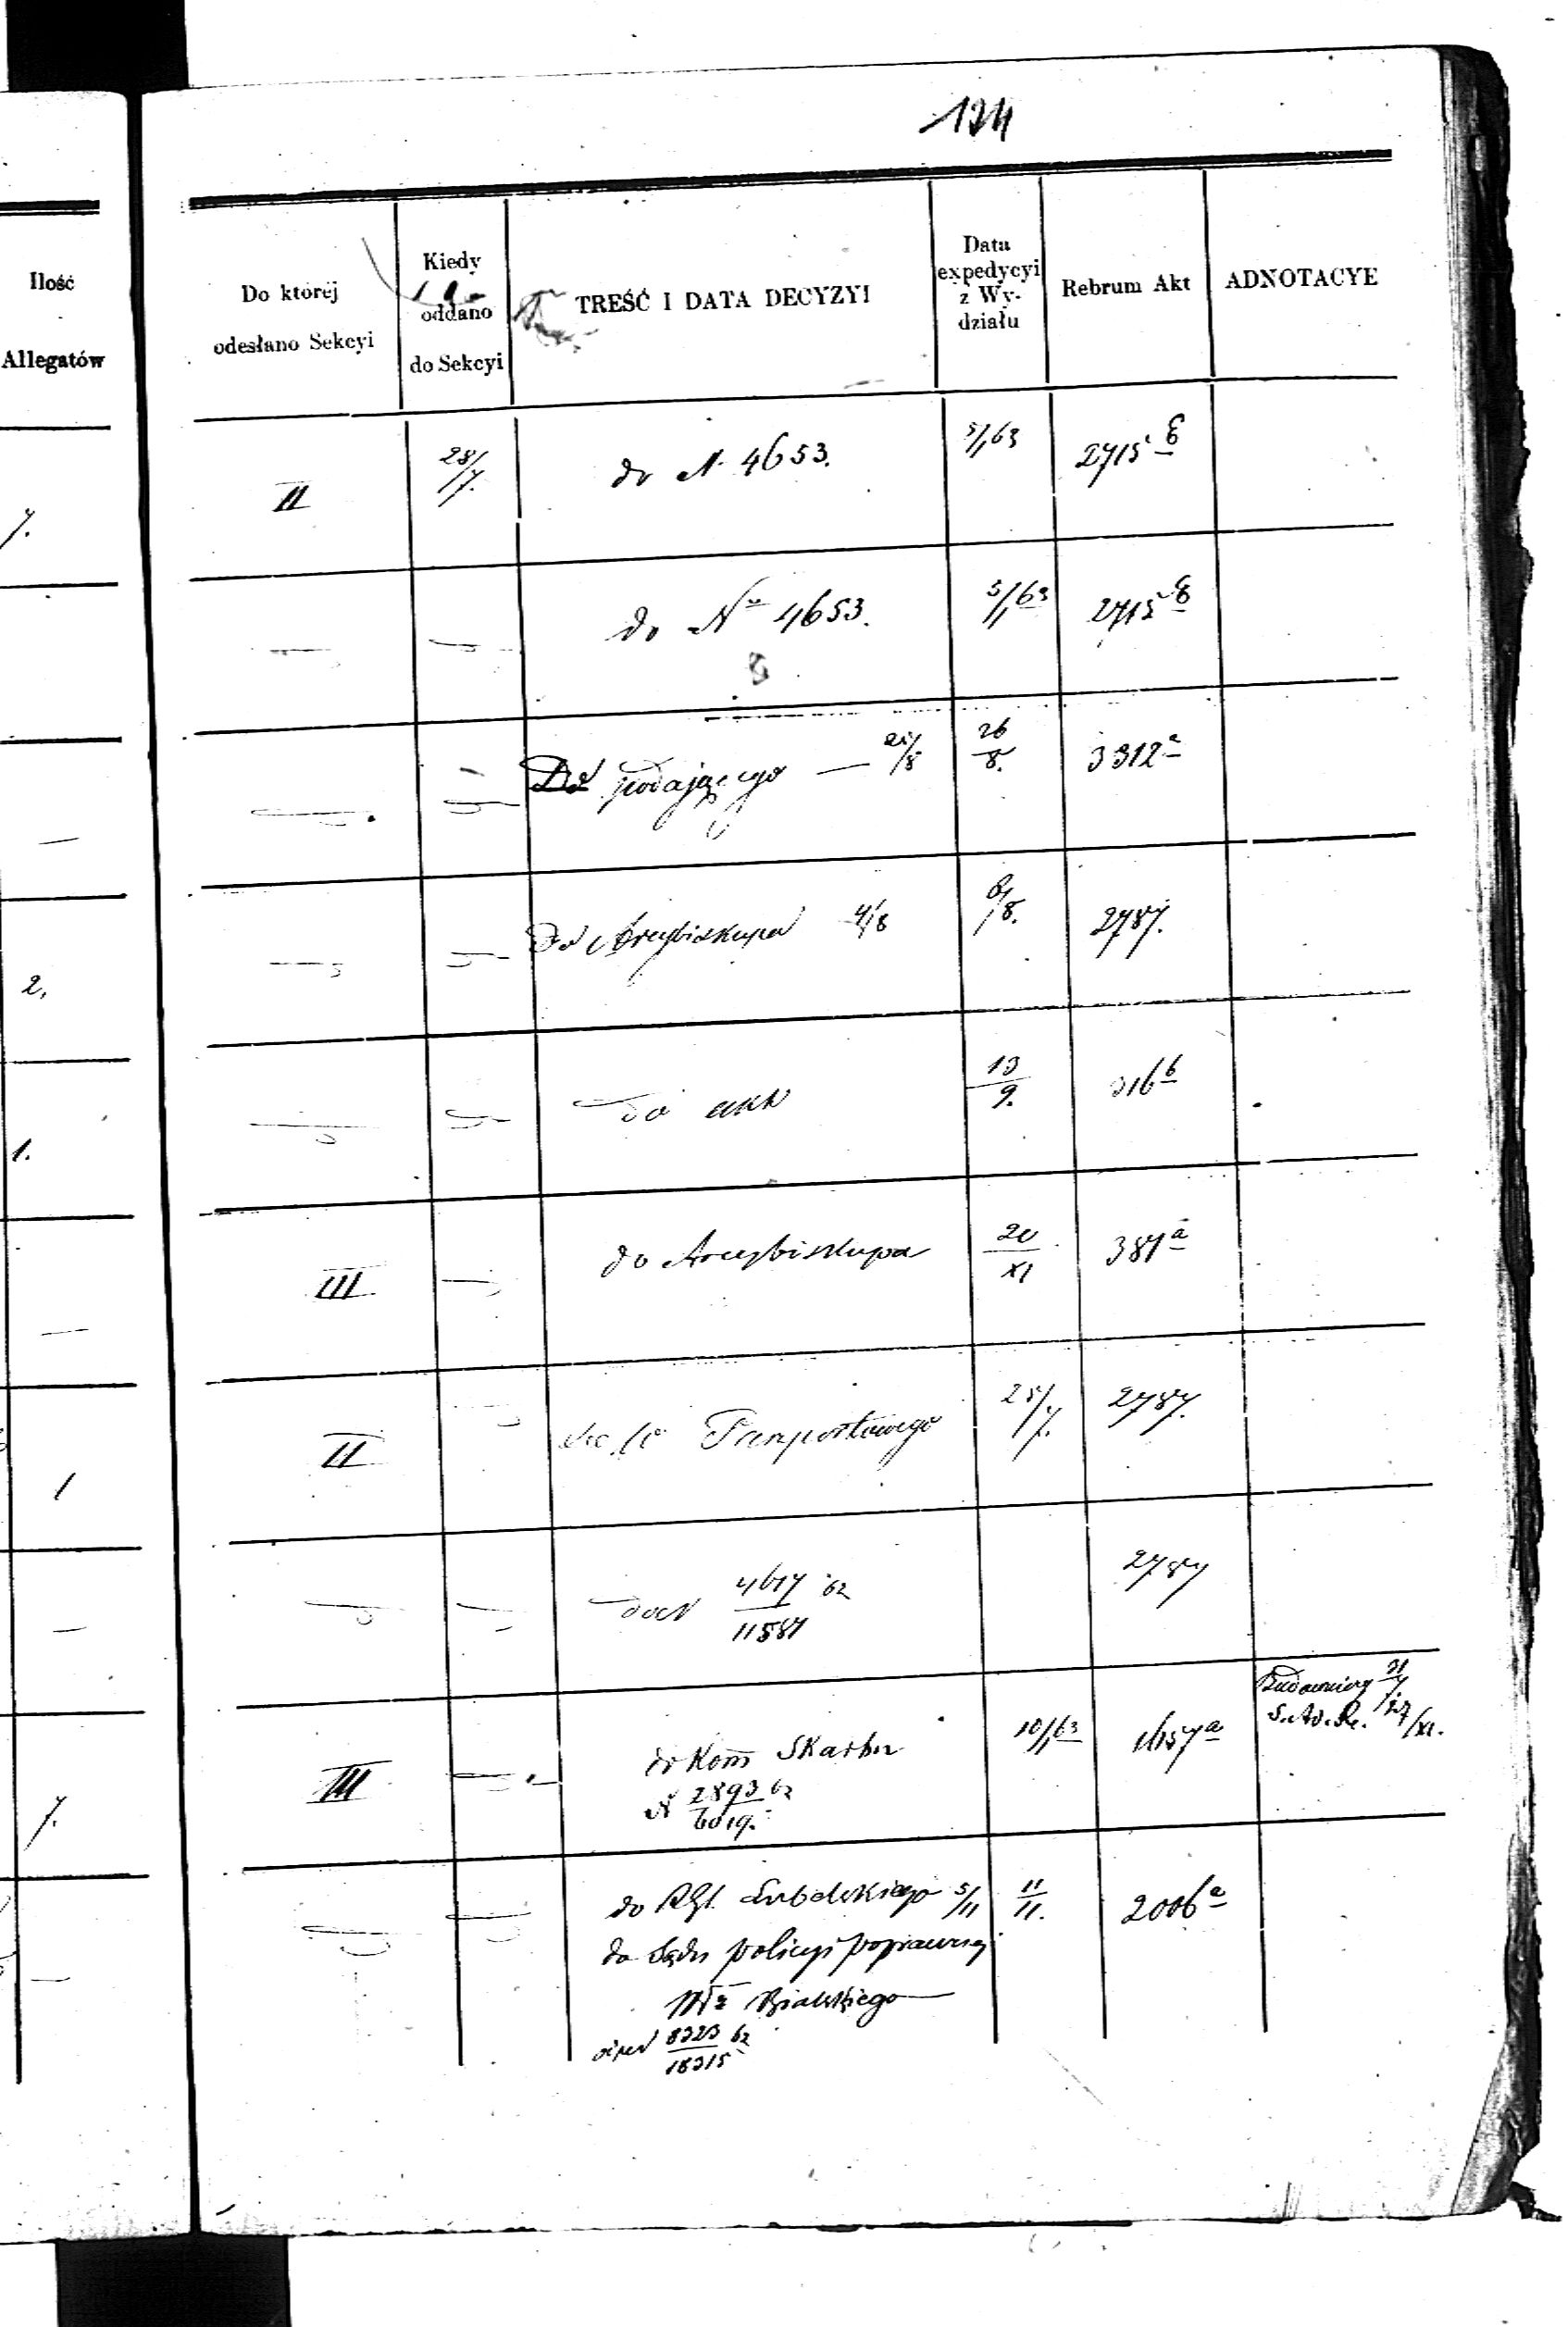 124
Ilość
Allegatów
Do której
odesłano Sekcyi
Kiedy
oddano
do Sekcyi
TREŚĆ I DATA DECYZYI
Data
expedycyi
z Wy-
działu
Rebrum Akt
ADNOTACYE
7.
II
28/7.
do N. 4653.
5/1 63
2715 b
do No 4653.
5/1 63
2715 b
Do podającego — 21/8
26/8.
3312 a
2.
Do Arcybiskupa 4/8
8/8.
2787.
1.
do akt
13/9.
316 b
III
do Arcybiskupa
20/XI
387 a
1
II
Paszportowego
25/7.
2787.
do N 4617/11587 62
2787
7.
III
do Kom Skarbu
N 2893/6019. 62
10/1 63
1157 a
Budowniczy 31/7.
27/XI.
do RGl. Lubelskiego 5/11
11/11.
2006 a
do Sądu policyi poprawczej
Wu Bialskiego
8323/18315 62